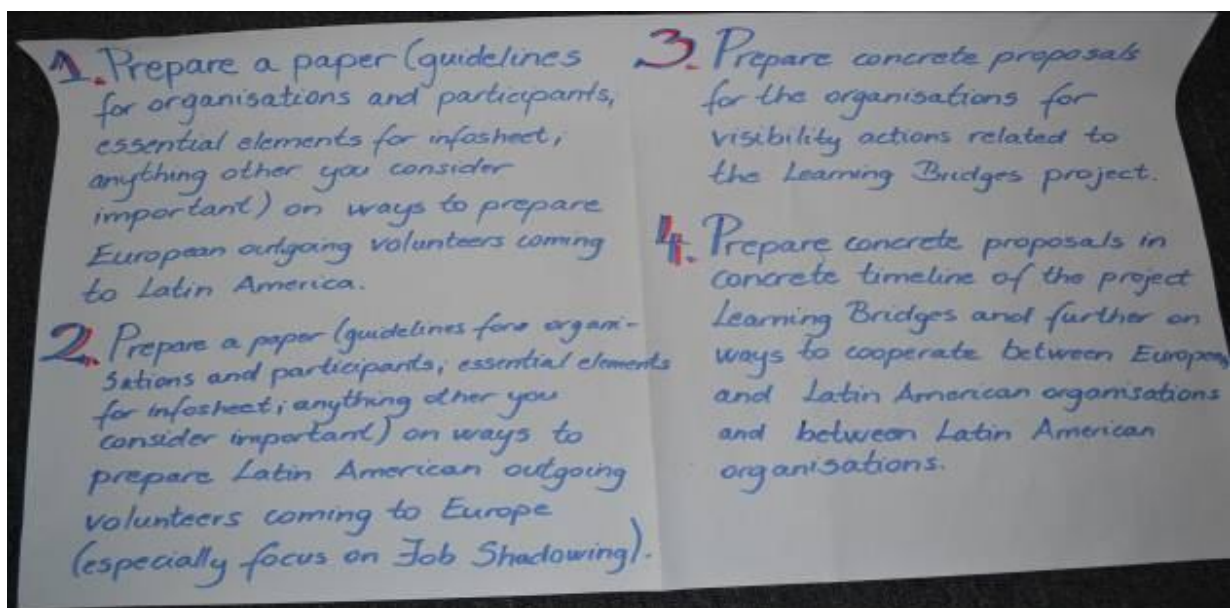 1. Prepare a paper (guidelines
for organisations and participants,
essential elements for infosheet,
anything other you consider
important) on ways to prepare
European outgoing volunteers coming
to Latin America.
2. Prepare a paper (guidelines for organi-
sations and participants, essential elements
for infosheet, anything other you
consider important) on ways to
prepare Latin American outgoing
volunteers coming to Europe
(especially focus on Job Shadowing).
3. Prepare concrete proposals
for the organisations for
visibility actions related to
the Learning Bridges project.
4. Prepare concrete proposals in
concrete timeline of the project
Learning Bridges and further on
ways to cooperate between European
and Latin American organisations
and between Latin American
organisations.